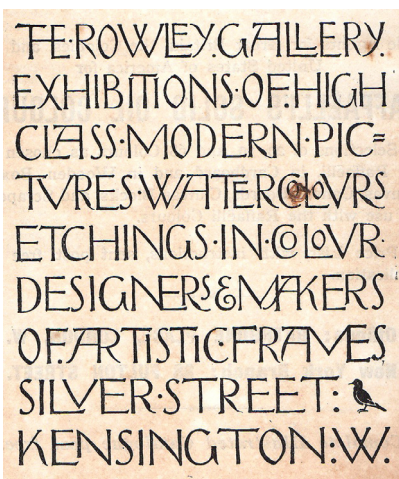 THE·ROWLEY·GALLERY.
EXHIBITIONS·OF·HIGH
CLASS·MODERN·PIC=
TVRES·WATERCOLOVRS
ETCHINGS·IN·COLOVR·
DESIGNERS&MAKERS
OF·ARTISTIC·FRAMES
SILVER·STREET:
KENSINGTON:W.